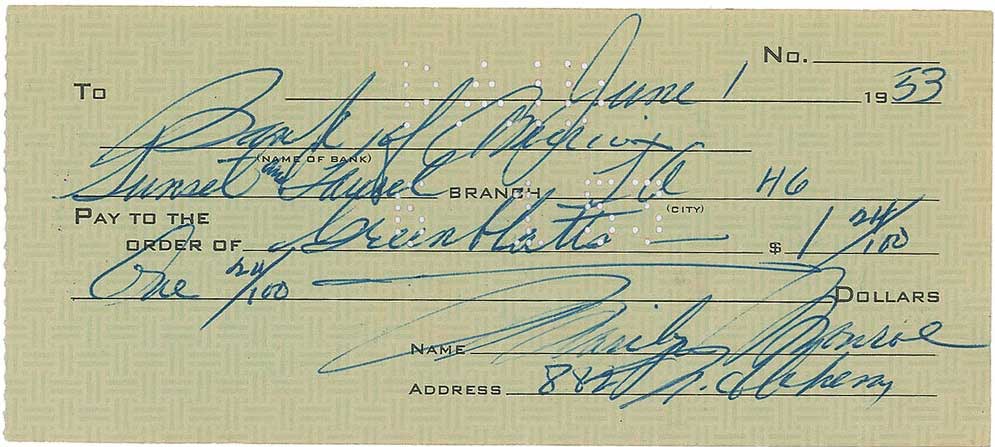 No.
To June 1 19 53
Bank of America
(NAME OF BANK)
Sunset and Laurel BRANCH 46
(CITY)
PAY TO THE
ORDER OF Greenblatts — $ 1 24/100
One 24/100 DOLLARS
NAME Marilyn Monroe
ADDRESS 882